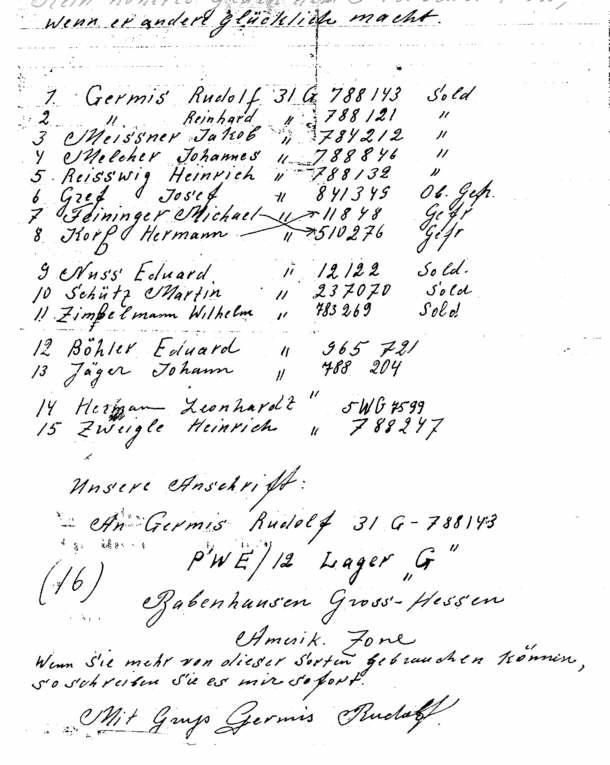 wenn er andere Glücklich macht.
1 Germis Rudolf 31 G 788143 Sold
2 " Reinhard " 788121 "
3 Meissner Jakob " 784212 "
4 Melcher Johannes " 788846 "
5 Reisswig Heinrich " 788132 "
6 Gref Josef " 841345 Ob. Gefr.
7 Feininger Michael " 11848 Gefr
8 Korf Hermann " 510276 Gefr
9 Nuss Eduard " 12122 Sold.
10 Schütz Martin " 237070 Sold
11 Zimpelmann Wilhelm " 783269 Sold
12 Böhler Eduard " 965 721
13 Jäger Johann " 788 204
14 Herman Leonhardt " 5WG 7599
15 Zweigle Heinrich " 788247
Unsere Anschrift:
An Germis Rudolf 31 G-788143
PWE/12 Lager „G"
(16)
Babenhausen Gross-Hessen
Amerik. Zone
Wenn Sie mehr von dieser Sorten gebrauchen können,
so schreiben Sie es mir sofort.
Mit Gruß Germis Rudolf